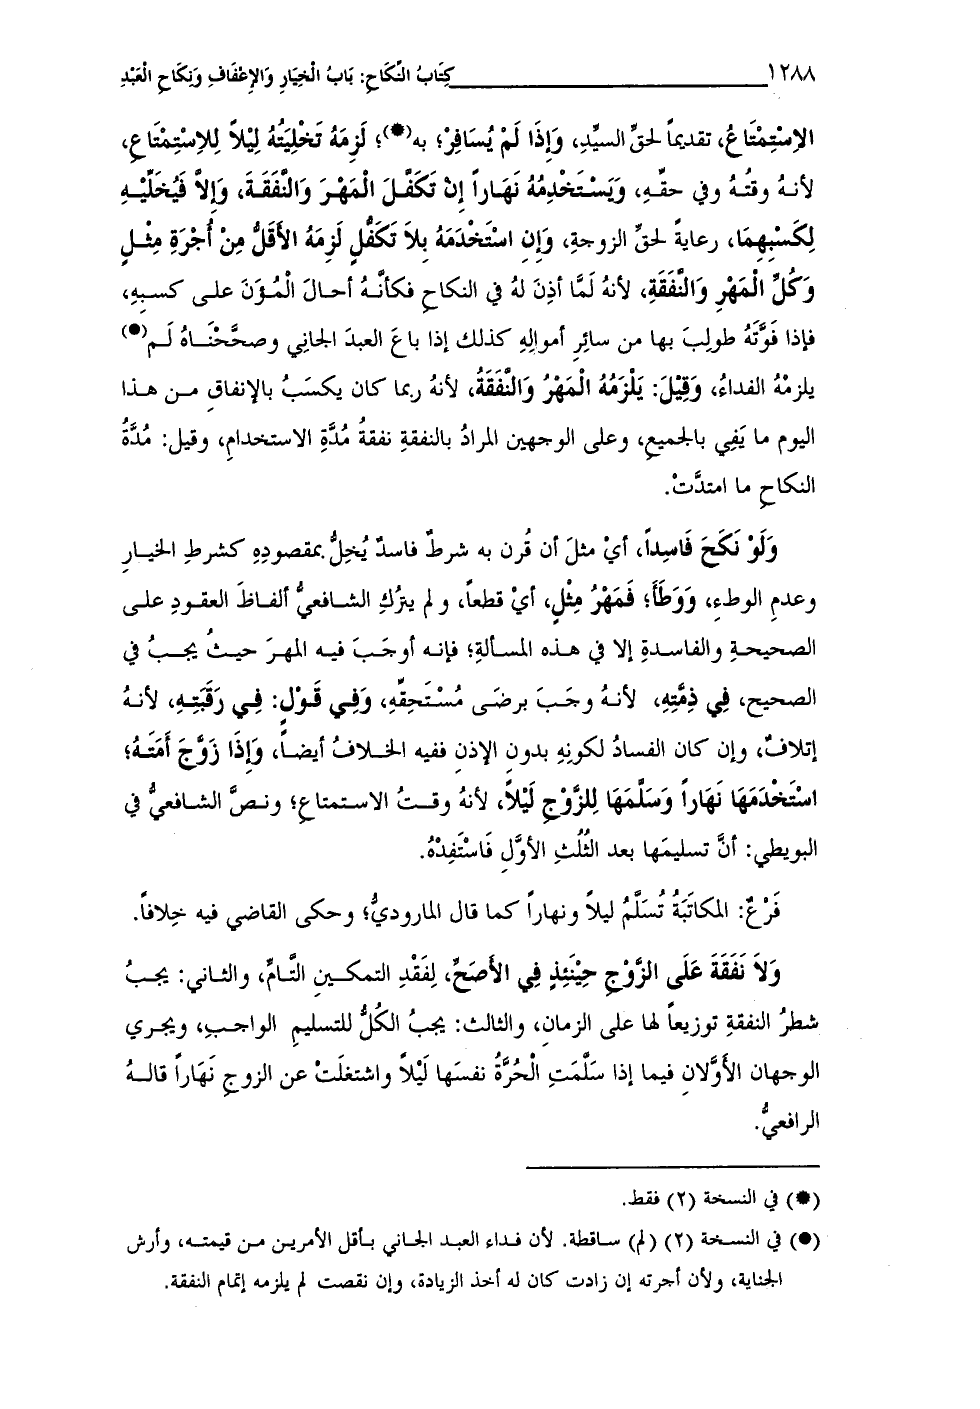 ١٢٨٨ كِتَابُ النِّكَاحِ: بَابُ الْخِيَارِ وَالإِعْفَافِ وَنِكَاحِ الْعَبْدِ
الإِسْتِمْتَاعُ، تقديماً لحقِّ السيِّدِ، وَإِذَا لَمْ يُسَافِرْ؛ به(✸)؛ لَزِمَهُ تَخْلِيَتُهُ لَيْلاً لِلإِسْتِمْتَاعِ،
لأنهُ وقتُهُ وفي حقِّهِ، وَيَسْتَخْدِمُهُ نَهَاراً إِنْ تَكَفَّلَ الْمَهْرَ وَالنَّفَقَةَ، وَإِلاَّ فَيُخَلِّيْهِ
لِكَسْبِهِمَا، رعايةً لحقِّ الزوجةِ، وَإِنِ اسْتَخْدَمَهُ بِلاَ تَكَفُّلٍ لَزِمَهُ الأَقَلُّ مِنْ أُجْرَةِ مِثْلٍ
وَكُلِّ الْمَهْرِ وَالنَّفَقَةِ، لأنهُ لَمَّا أذِنَ لهُ في النكاحِ فكأنَّهُ أحالَ الْمُؤَنَ على كسبِهِ،
فإذا فَوَّتَهُ طولِبَ بها من سائرِ أموالِهِ كذلك إذا باعَ العبدَ الجاني وصحَّحْنَاهُ لَم(●)
يلزمْهُ الفداءُ، وَقِيْلَ: يَلْزَمُهُ الْمَهْرُ وَالنَّفَقَةُ، لأنهُ ربما كان يكسَبُ بالإنفاقِ من هذا
اليوم ما يَفِي بالجميعِ، وعلى الوجهين المرادُ بالنفقةِ نفقةُ مُدَّةِ الاستخدامِ، وقيل: مُدَّةُ
النكاحِ ما امتدَّتْ.
وَلَوْ نَكَحَ فَاسِداً، أيْ مثلَ أن قُرن به شرطٌ فاسدٌ يُخِلُّ بمقصودِهِ كشرطِ الخيارِ
وعدمِ الوطءِ، وَوَطَأَ؛ فَمَهْرُ مِثْلٍ، أيْ قطعاً، ولم يترُكِ الشافعيُّ ألفاظَ العقودِ على
الصحيحةِ والفاسدةِ إلا في هذه المسألةِ؛ فإنه أوجَبَ فيه المهرَ حيثُ يجبُ في
الصحيح، فِي ذِمَّتِهِ، لأنهُ وجَبَ برضَى مُسْتَحِقِّهِ، وَفِي قَوْلٍ: فِي رَقَبَتِهِ، لأنهُ
إتلافٌ، وإن كان الفسادُ لكونِهِ بدون الإذنِ ففيه الخلافُ أيضاً، وَإِذَا زَوَّجَ أَمَتَهُ؛
اسْتَخْدَمَهَا نَهَاراً وَسَلَّمَهَا لِلزَّوْجِ لَيْلاً، لأنهُ وقتُ الاستمتاعِ؛ ونصَّ الشافعيُّ في
البويطي: أنَّ تسليمَها بعد الثُلُثِ الأوَّلِ فَاسْتَفِدْهُ.
فَرْعٌ: المكاتَبَةُ تُسَلَّمُ ليلاً ونهاراً كما قال الماروديُّ؛ وحكى القاضي فيه خِلافاً.
وَلاَ نَفَقَةَ عَلَى الزَّوْجِ حِيْنَئِذٍ فِي الأَصَحِّ، لِفَقْدِ التمكينِ التَّامِّ، والثاني: يجبُ
شطرُ النفقةِ توزيعاً لها على الزمانِ، والثالث: يجبُ الكُلُّ للتسليمِ الواجبِ، ويجري
الوجهان الأَوَّلانِ فيما إذا سَلَّمَتِ الْحُرَّةُ نفسَها لَيْلاً واشتغلَتْ عن الزوجِ نَهَاراً قالهُ
الرافعيُّ.
(✸) في النسخة (٢) فقط.
(●) في النسخة (٢) (لم) ساقطة. لأن فداء العبد الجاني بأقل الأمرين من قيمته، وأرش
الجناية، ولأن أجرته إن زادت كان له أخذ الزيادة، وإن نقصت لم يلزمه إتمام النفقة.